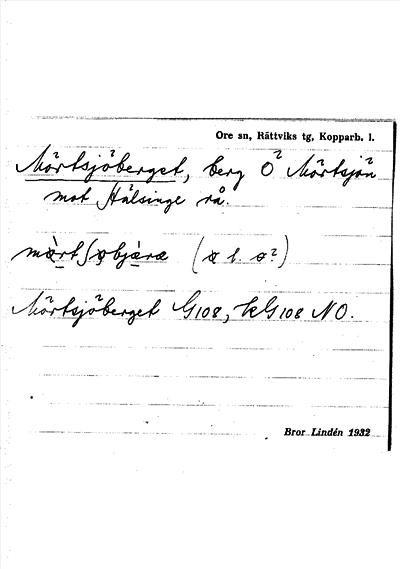 Ore sn, Rättviks tg, Kopparb. l.
Mörtsjöberget, berg Ö Mörtsjön
mot Hälsinge rå.
(ɞ l. ɵ?)
Mörtsjöberget G108, kG108 NO.
Bror Lindén 1932